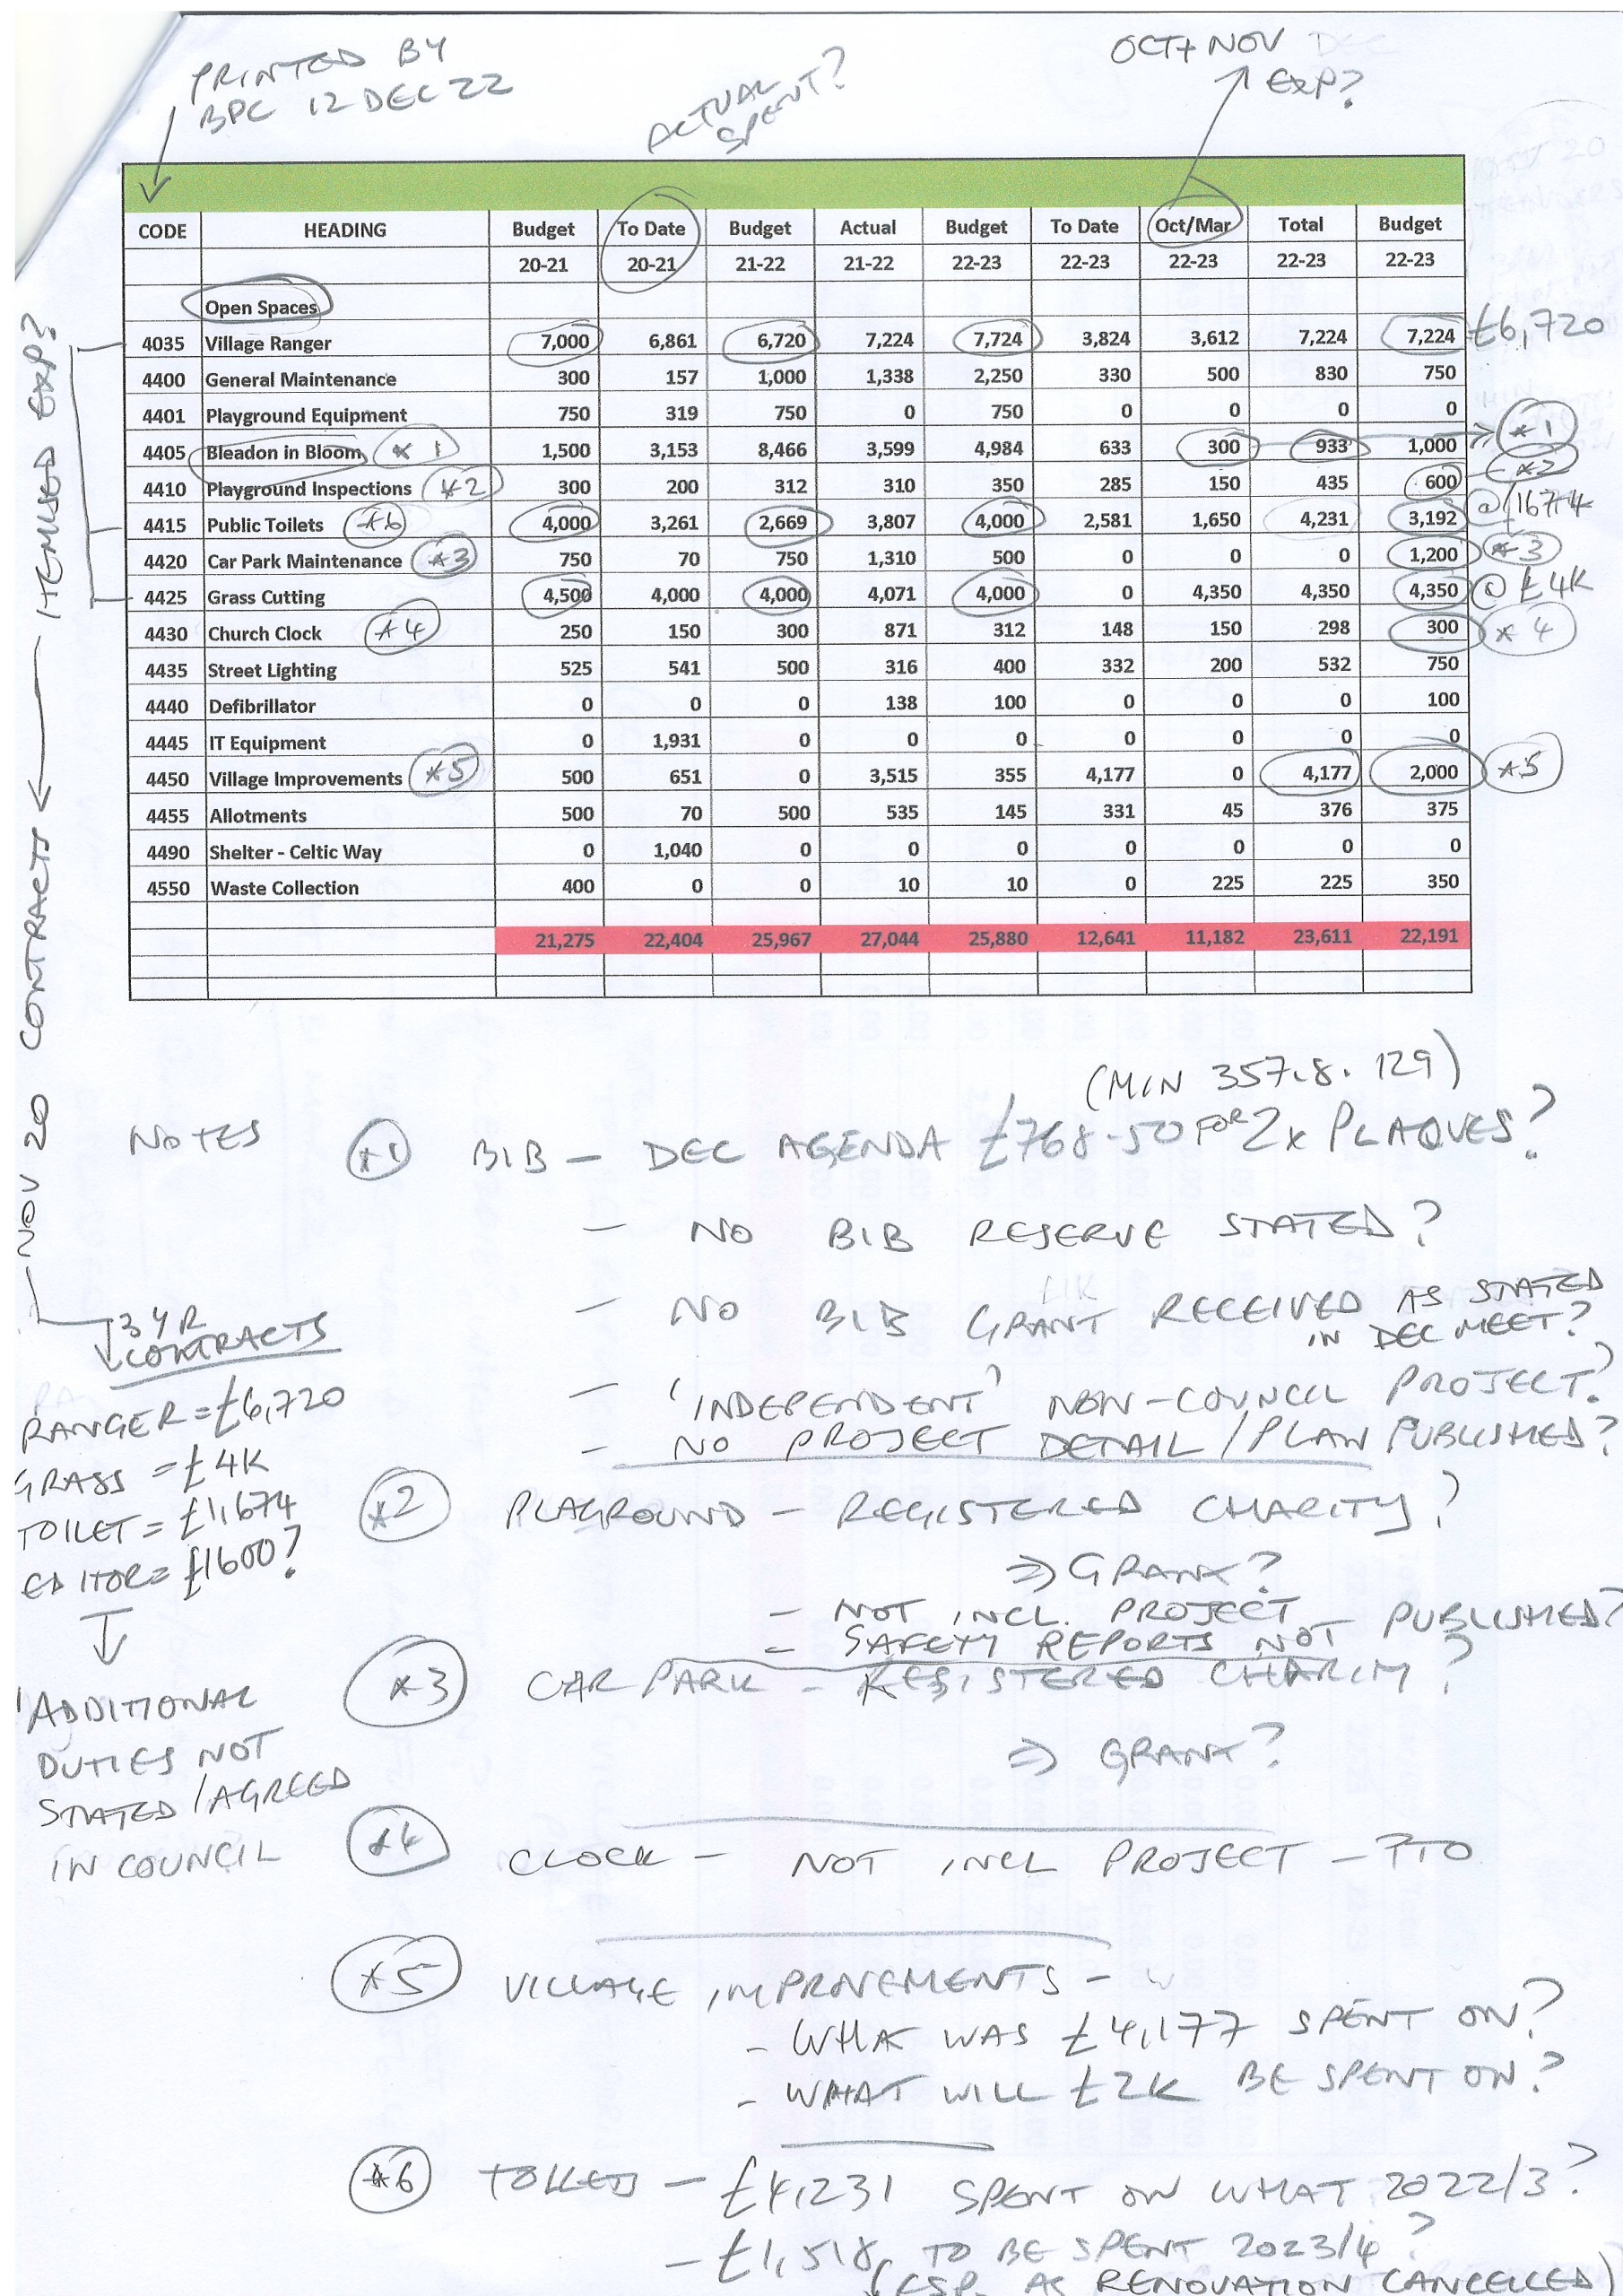 PRINTED BY
BPC 12 DEC 22
ACTUAL
SPENT?
OCT+ NOV DEC
EXP?
CODE HEADING Budget To Date Budget Actual Budget To Date Oct/Mar Total Budget
20-21 20-21 21-22 21-22 22-23 22-23 22-23 22-23 22-23
Open Spaces
4035 Village Ranger 7,000 6,861 6,720 7,224 7,724 3,824 3,612 7,224 7,224 £6,720
4400 General Maintenance 300 157 1,000 1,338 2,250 330 500 830 750
4401 Playground Equipment 750 319 750 0 750 0 0 0 0
4405 Bleadon in Bloom *1 1,500 3,153 8,466 3,599 4,984 633 300 933 1,000 *1
4410 Playground Inspections *2 300 200 312 310 350 285 150 435 600 *2
4415 Public Toilets *6 4,000 3,261 2,669 3,807 4,000 2,581 1,650 4,231 3,192 @1674
4420 Car Park Maintenance *3 750 70 750 1,310 500 0 0 0 1,200 *3
4425 Grass Cutting 4,500 4,000 4,000 4,071 4,000 0 4,350 4,350 4,350 @ £4K
4430 Church Clock *4 250 150 300 871 312 148 150 298 300 *4
4435 Street Lighting 525 541 500 316 400 332 200 532 750
4440 Defibrillator 0 0 0 138 100 0 0 0 100
4445 IT Equipment 0 1,931 0 0 0 0 0 0 0
4450 Village Improvements *5 500 651 0 3,515 355 4,177 0 4,177 2,000 *5
4455 Allotments 500 70 500 535 145 331 45 376 375
4490 Shelter - Celtic Way 0 1,040 0 0 0 0 0 0 0
4550 Waste Collection 400 0 0 10 10 0 225 225 350
21,275 22,404 25,967 27,044 25,880 12,641 11,182 23,611 22,191
NOV 20 CONTRACTS ← ITEMISED EXP?
3 YR
CONTRACTS
RANGER = £6,720
GRASS = £4K
TOILET = £1,674
EDITOR = £1600?
'ADDITIONAL
DUTIES NOT
STATED / AGREED
IN COUNCIL
NOTES
(MIN 357.8.129)
*1 BIB - DEC AGENDA £768-50 FOR 2x PLAQUES?
- NO BIB RESERVE STATED?
£1K
- NO BIB GRANT RECEIVED AS STATED
IN DEC MEET?
- 'INDEPENDENT' NON-COUNCIL PROJECT?
- NO PROJECT DETAIL / PLAN PUBLISHED?
*2 PLAGROUND - REGISTERED CHARITY?
⇒ GRANT?
- NOT INCL. PROJECT
- SAFETY REPORTS NOT PUBLISHED?
*3 CAR PARK - REGISTERED CHARITY?
⇒ GRANT?
*4 CLOCK - NOT INCL PROJECT - PTO
*5 VILLAGE IMPROVEMENTS -
- WHAT WAS £4,177 SPENT ON?
- WHAT WILL £2K BE SPENT ON?
*6 TOILETS - £4,231 SPENT ON WHAT 2022/3?
- £1,518 TO BE SPENT 2023/4?
(ESP. AS RENOVATION CANCELLED)